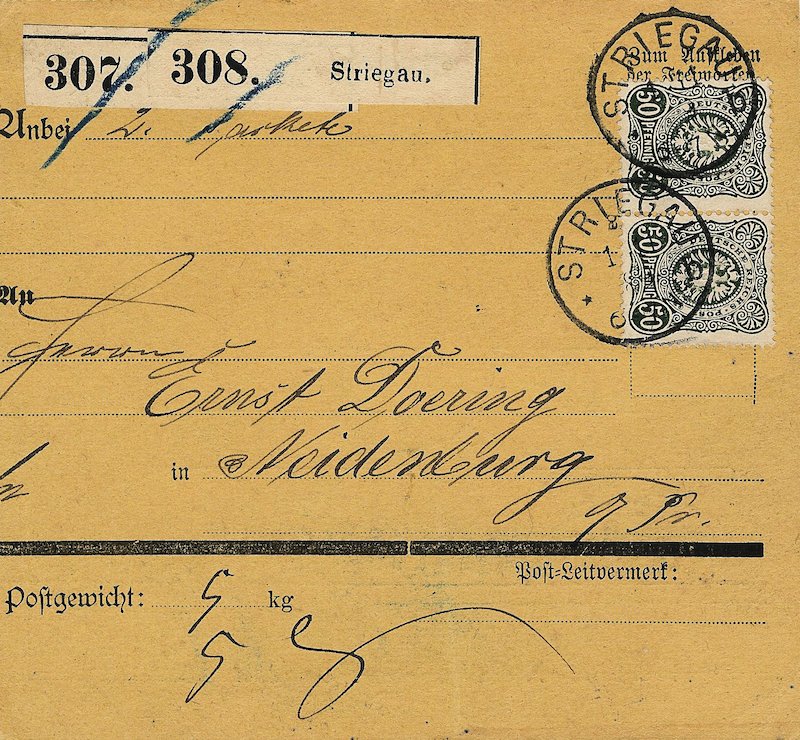 307. 308. Striegau.
Zum Aufkleben
der Freimarken
STRIEGAU
50 PFENNIG 50
Anbei 2. Packete
STRIEGAU
50 PFENNIG 50
DEUTSCHE REICHS-POST
An
Herrn
Ernst Doering
in Neidenburg
Pr.
Post-Leitvermerk:
Postgewicht: 5 kg
5